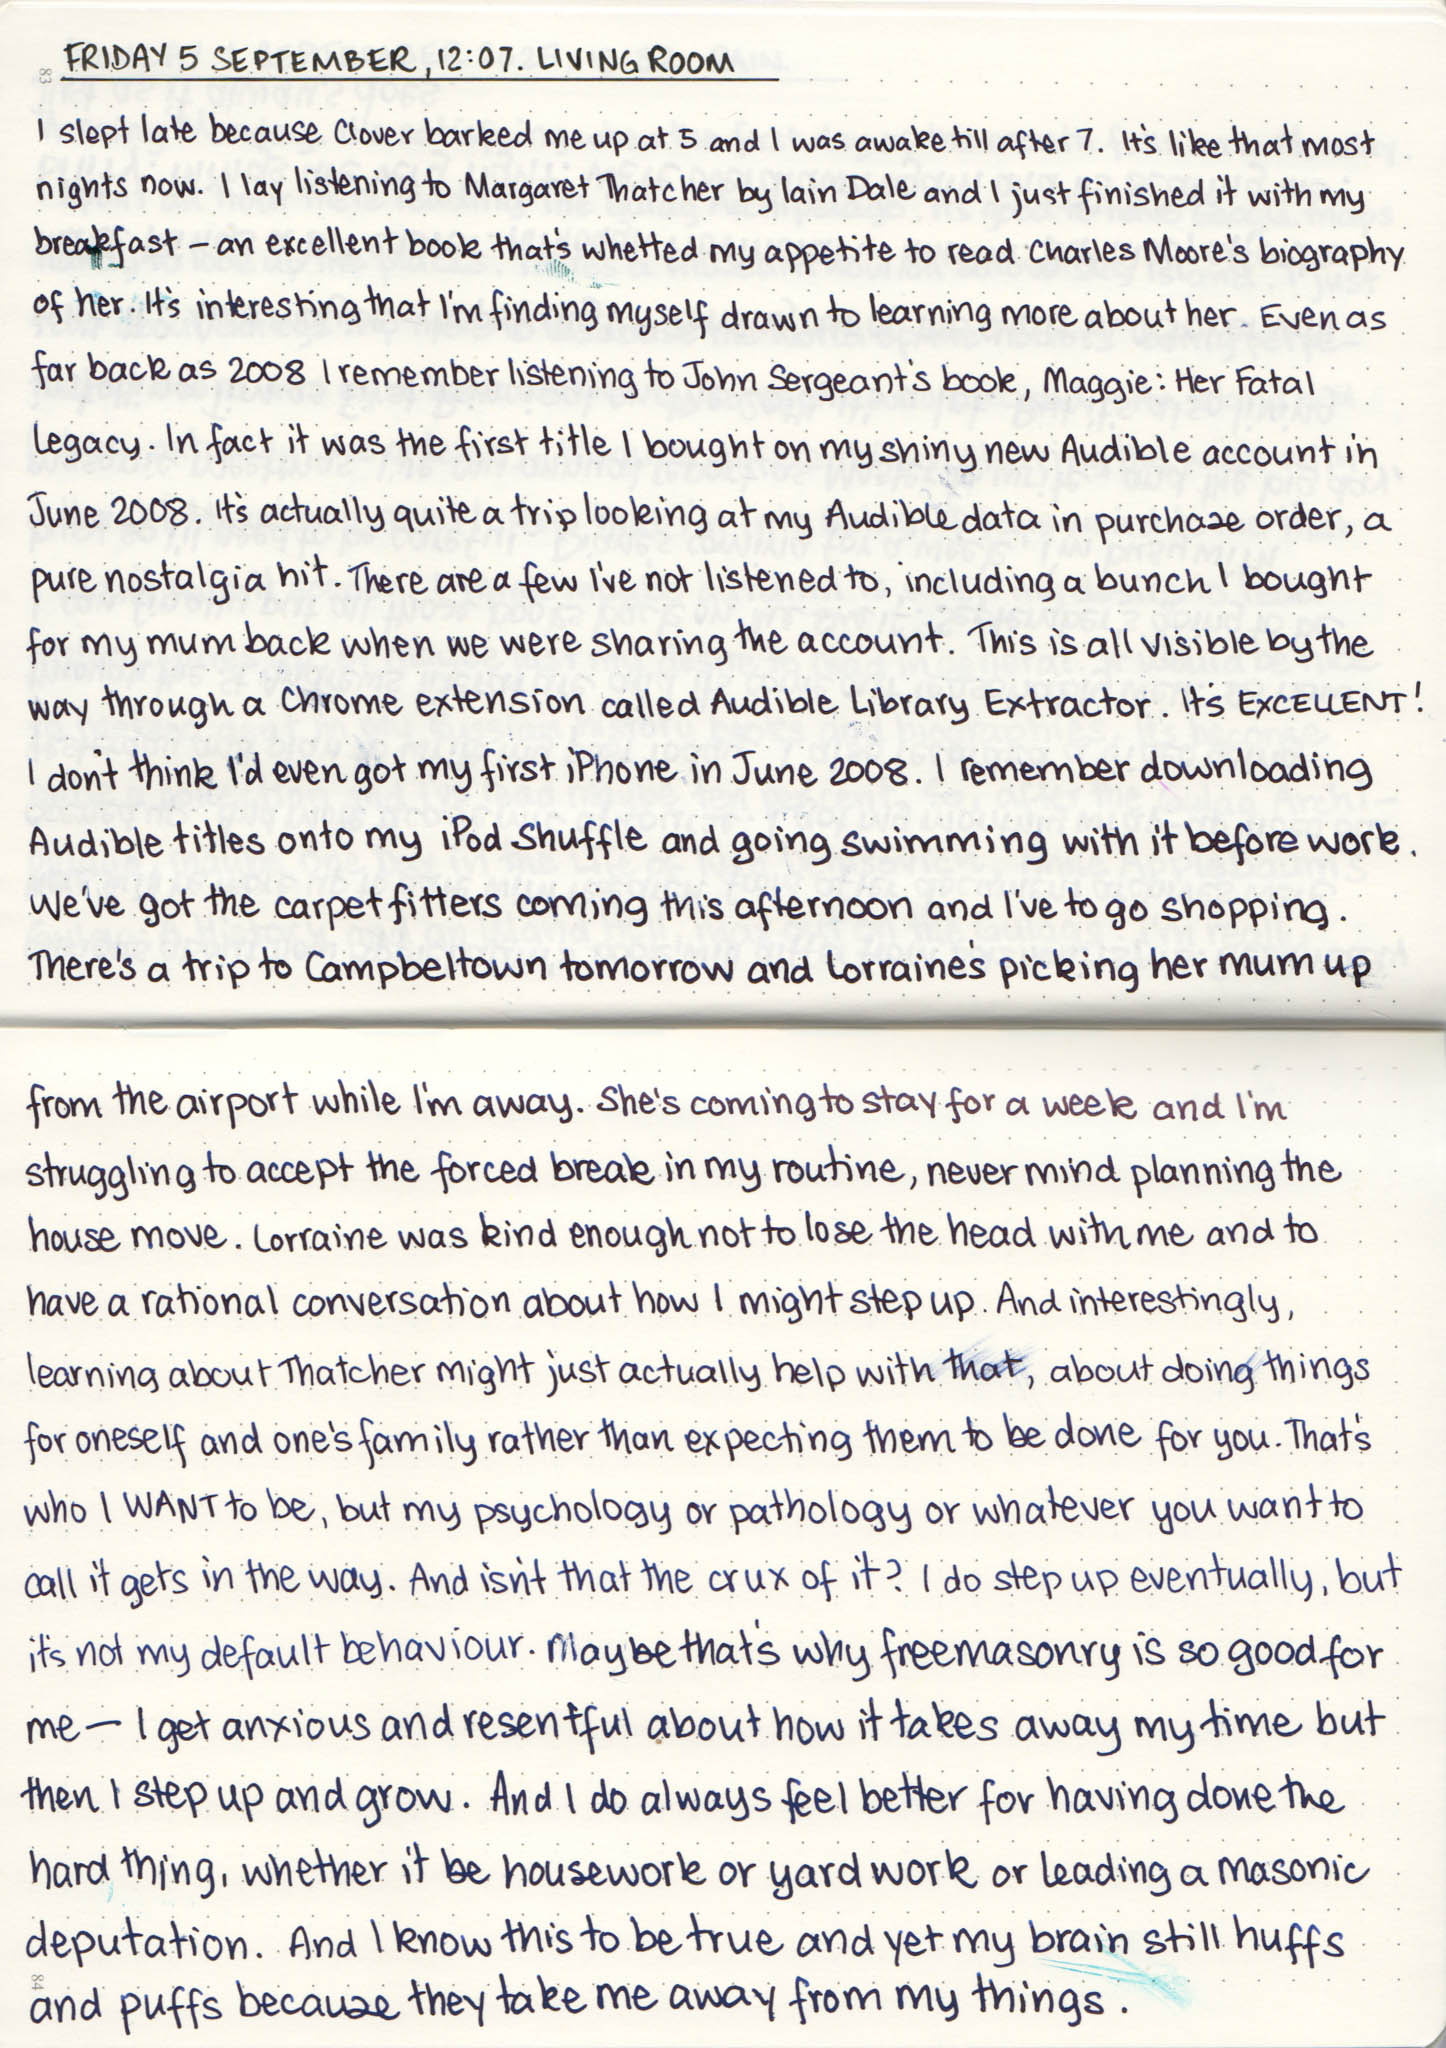 83
FRIDAY 5 SEPTEMBER, 12:07. LIVING ROOM
I slept late because Clover barked me up at 5 and I was awake till after 7. It's like that most
nights now. I lay listening to Margaret Thatcher by Iain Dale and I just finished it with my
breakfast – an excellent book that's whetted my appetite to read Charles Moore's biography
of her. It's interesting that I'm finding myself drawn to learning more about her. Even as
far back as 2008 I remember listening to John Sergeant's book, Maggie: Her Fatal
Legacy. In fact it was the first title I bought on my shiny new Audible account in
June 2008. It's actually quite a trip looking at my Audible data in purchase order, a
pure nostalgia hit. There are a few I've not listened to, including a bunch I bought
for my mum back when we were sharing the account. This is all visible by the
way through a Chrome extension called Audible Library Extractor. It's EXCELLENT!
I don't think I'd even got my first iPhone in June 2008. I remember downloading
Audible titles onto my iPod Shuffle and going swimming with it before work.
We've got the carpet fitters coming this afternoon and I've to go shopping.
There's a trip to Campbeltown tomorrow and Lorraine's picking her mum up
from the airport while I'm away. She's coming to stay for a week and I'm
struggling to accept the forced break in my routine, never mind planning the
house move. Lorraine was kind enough not to lose the head with me and to
have a rational conversation about how I might step up. And interestingly,
learning about Thatcher might just actually help with that, about doing things
for oneself and one's family rather than expecting them to be done for you. That's
who I WANT to be, but my psychology or pathology or whatever you want to
call it gets in the way. And isn't that the crux of it? I do step up eventually, but
it's not my default behaviour. Maybe that's why freemasonry is so good for
me – I get anxious and resentful about how it takes away my time but
then I step up and grow. And I do always feel better for having done the
hard thing, whether it be housework or yard work or leading a masonic
deputation. And I know this to be true and yet my brain still huffs
84
and puffs because they take me away from my things.